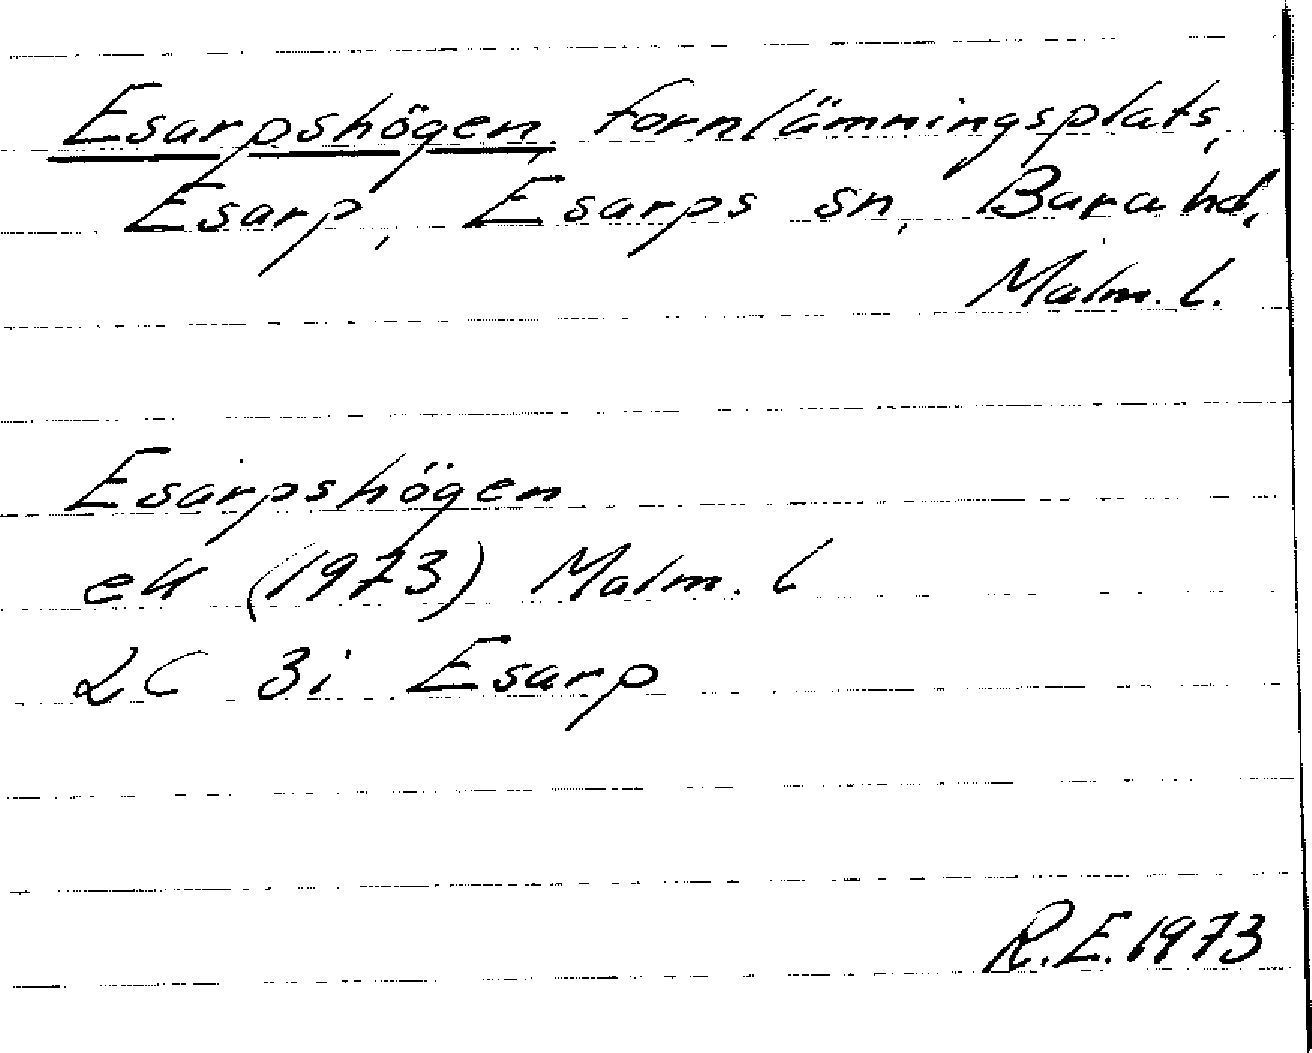 Esarpshögen, fornlämningsplats,
Esarp, Esarps sn, Bara hd,
Malm. l.
Esarpshögen
ek (1973) Malm. l
2C 3i Esarp
R.E. 1973